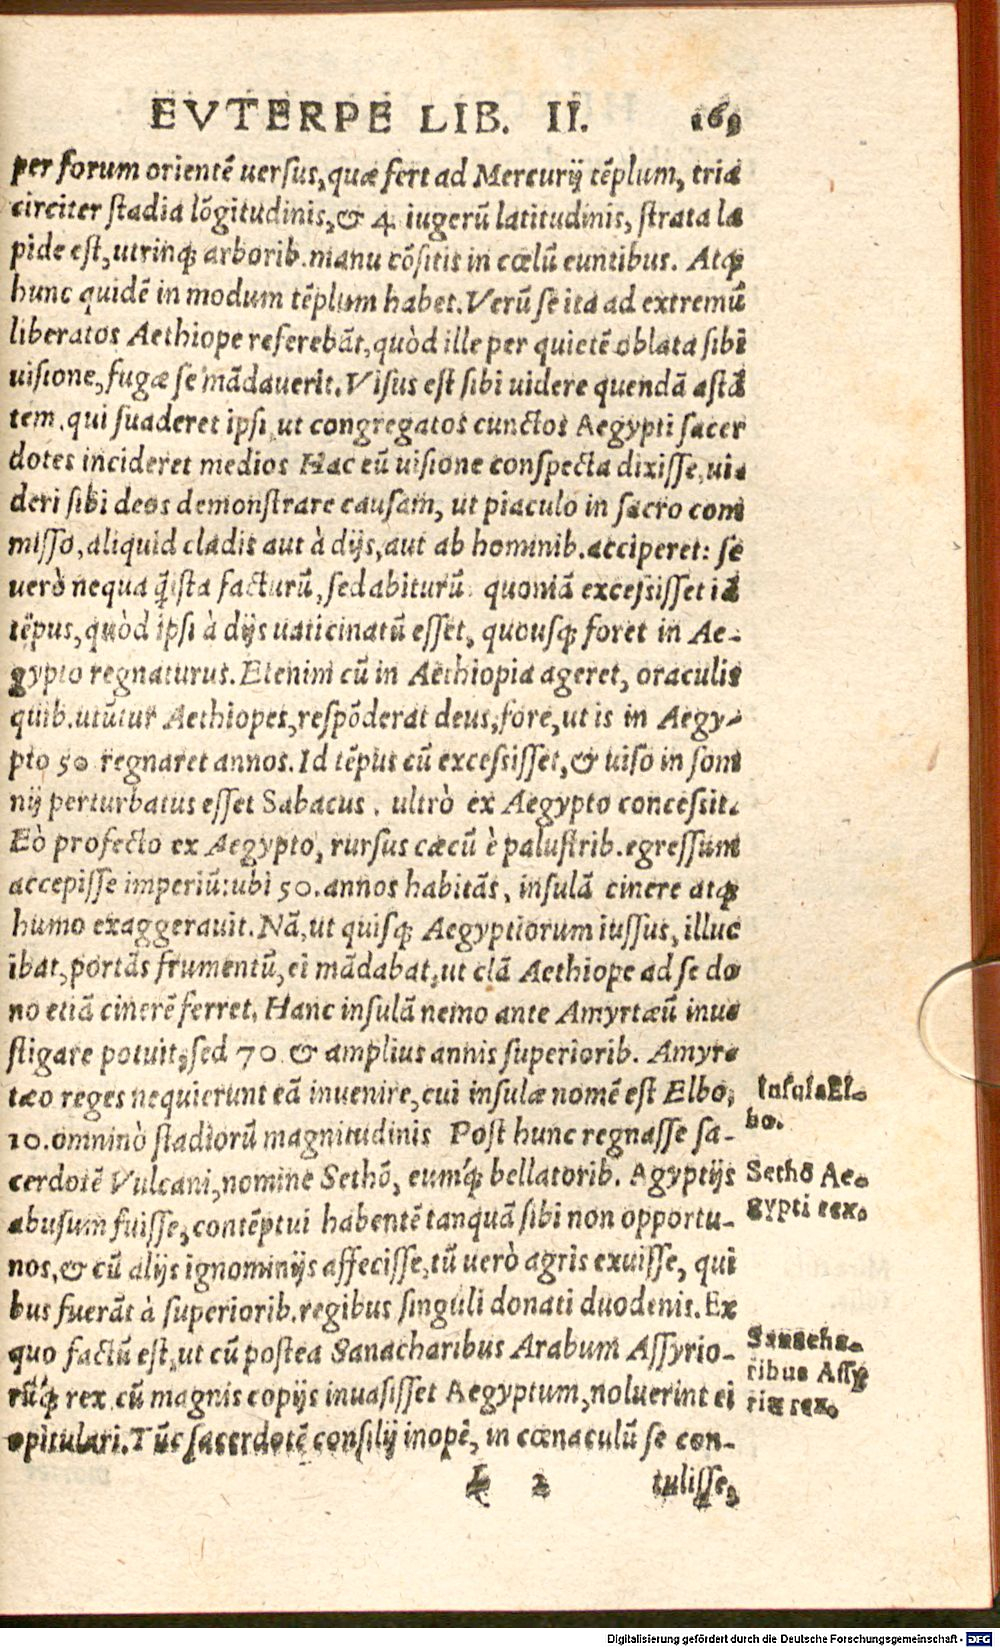 EVTERPE LIB. II. 163
per forum orientē uersus, quæ fert ad Mercurij tēplum, tria
circiter stadia lōgitudinis, & 4 iugerū latitudinis, strata la
pide est, utrinq; arborib. manu cōsitis in cœlū euntibus. Atq;
hunc quidē in modum tēplum habet. Verū se ita ad extremū
liberatos Aethiope referebāt, quòd ille per quietē oblata sibi
uisione, fugæ se mādauerit. Visus est sibi uidere quendā astā
tem, qui suaderet ipsi, ut congregatos cunctos Aegypti sacer
dotes incideret medios Hac eū uisione conspecta dixisse, ui-
deri sibi deos demonstrare causam, ut piaculo in sacro com
misso, aliquid cladis aut à dijs, aut ab hominib. acciperet: se
uerò nequaq̃ ista facturū, sed abiturū quoniā excessisset id
tēpus, quòd ipsi à dijs uaticinatū esset, quousq; foret in Ae-
gypto regnaturus. Etenim cū in Aethiopia ageret, oraculis
quib. utūtur Aethiopes, respōderat deus, fore, ut is in Aegy-
pto 50 regnaret annos. Id tēpus cū excessisset, & uiso in som
nij perturbatus esset Sabacus, ultrò ex Aegypto concessit.
Eò profecto ex Aegypto, rursus cæcū è palustrib. egressum
accepisse imperiū: ubi 50. annos habitās, insulā cinere atq;
humo exaggerauit. Nā, ut quisq; Aegyptiorum iussus, illuc
ibat, portās frumentū, ei mādabat, ut clā Aethiope ad se do
no etiā cinerē ferret. Hanc insulā nemo ante Amyrtæū inue
stigare potuit, sed 70 & amplius annis superiorib. Amyr-
tæo reges nequierunt eā inuenire, cui insulæ nomē est Elbo,
10. omninò stadiorū magnitudinis Post hunc regnasse sa-
cerdotē Vulcani, nomine Sethō, eumq́; bellatorib. Agyptijs
abusum fuisse, contēptui habentē tanquā sibi non opportu-
nos, & cū alijs ignominijs affecisse, tū uerò agris exuisse, qui
bus fuerāt à superiorib. regibus singuli donati duodenis. Ex
quo factū est, ut cū postea Sanacharibus Arabum Assyrio-
rūq́; rex cū magnis copijs inuasisset Aegyptum, noluerint ei
opitulari. Tūc sacerdotē consilij inopē, in cœnaculū se con-
L 2 tulisse,
Insula El-
bo.
Setho Ae-
gypti rex.
Sanacha-
ribus Assy
riæ rex.
Digitalisierung gefördert durch die Deutsche Forschungsgemeinschaft - DFG